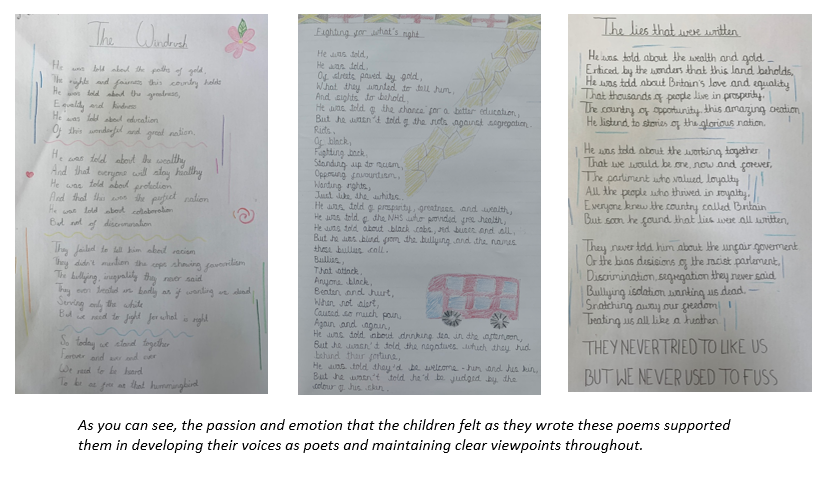 The Windrush
He was told about the paths of gold,
The rights and fairness this country holds
He was told about the greatness,
Equality and kindness
He was told about education
Of this wonderful and great nation.
He was told about the wealthy
And that everyone will stay healthy
He was told about protection
And that this was the perfect nation
He was told about collaboration
But not of discrimination
They failed to tell him about racism
They didn't mention the cops showing favouritism
The bullying, inequality they never said
They even treated us badly as if wanting us dead
Serving only the white
But we need to fight for what is right
So today we stand together
Forever and ever and ever
We need to be heard
To be as free as that hummingbird
Fighting for what's right
He was told,
He was told,
Of streets paved by gold,
What they wanted to tell him,
And sights to behold.
He was told of the chance for a better education,
But he wasn't told of the riots against segregation.
Riots,
Of black,
Fighting back,
Standing up to racism,
Opposing favouritism,
Wanting rights,
Just like the whites.
He was told of prosperity, greatness and wealth,
He was told of the NHS who provided free health,
He was told about black cabs, red buses and all,
But he was blind from the bullying and the names
those bullies call.
Bullies,
That attack,
Anyone black,
Beaten and hurt,
When not alert,
Caused so much pain,
Again and again,
He was told about drinking tea in the afternoon,
But he wasn't told the negatives which they hid
behind their fortune,
He was told they'd be welcome - him and his kin,
But he wasn't told he'd be judged by the
colour of his skin.
The lies that were written
He was told about the wealth and gold
Enticed by the wonders that this land beholds,
He was told about Britain's love and equality
That thousands of people live in prosperity.
The country of opportunity this amazing creation
He listend to stories of the glorious nation.
He was told about the working together
That we would be one now and forever.
The parliment who valued loyalty
All the people who thrived in royalty.
Everyone knew the country called Britain
But soon he found that lies were all written.
They never told him about the unfair goverment
Or the bias decisions of the racist parlement,
Discrimination, segregation they never said
Bullying isolation wanting us dead
Snatching away our freedom
Treating us all like a heathen
THEY NEVER TRIED TO LIKE US
BUT WE NEVER USED TO FUSS
As you can see, the passion and emotion that the children felt as they wrote these poems supported
them in developing their voices as poets and maintaining clear viewpoints throughout.